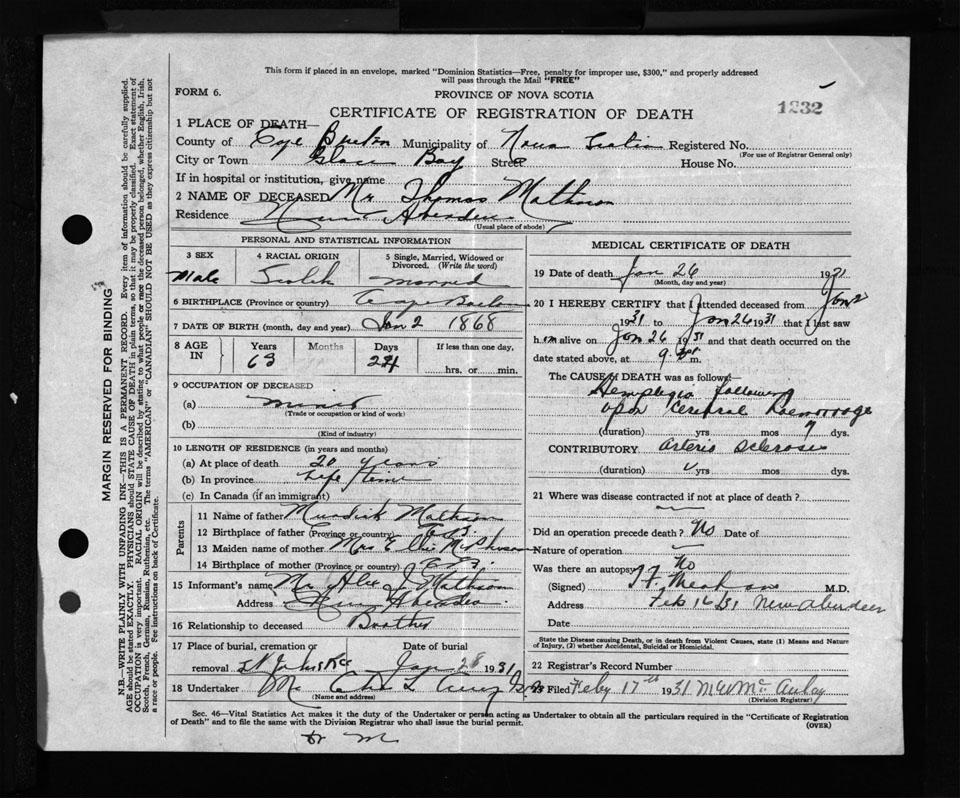 This form if placed in an envelope, marked "Dominion Statistics—Free, penalty for improper use, $300," and properly addressed
will pass through the Mail "FREE"
FORM 6.
PROVINCE OF NOVA SCOTIA
1232
CERTIFICATE OF REGISTRATION OF DEATH
1 PLACE OF DEATH—
County of Cape Breton Municipality of Nova Scotia Registered No.
(For use of Registrar General only)
City or Town Glace Bay Street House No.
If in hospital or institution, give name
2 NAME OF DECEASED Mr Thomas Matheson
Residence New Aberdeen
(Usual place of abode)
PERSONAL AND STATISTICAL INFORMATION
3 SEX
Male
4 RACIAL ORIGIN
Scotch
5 Single, Married, Widowed or Divorced. (Write the word)
Married
6 BIRTHPLACE (Province or country) Cape Breton
7 DATE OF BIRTH (month, day and year) Jan 2 1868
8 AGE IN
Years 63
Months
Days 24
If less than one day,
hrs. or min.
9 OCCUPATION OF DECEASED
(a) miner
(Trade or occupation or kind of work)
(b)
(Kind of industry)
10 LENGTH OF RESIDENCE (in years and months)
(a) At place of death 20 years
(b) In province Life time
(c) In Canada (if an immigrant)
Parents
11 Name of father Murdick Mathison
12 Birthplace of father (Province or country) C.B.
13 Maiden name of mother Mrs
14 Birthplace of mother (Province or country) C.B.
15 Informant's name Mr Alex J Mathison
Address New Aberdeen
16 Relationship to deceased Brother
17 Place of burial, cremation or removal
Date of burial
Jan 28 1931
18 Undertaker
(Name and address)
MEDICAL CERTIFICATE OF DEATH
19 Date of death Jan 26 1931
(Month, day and year)
20 I HEREBY CERTIFY that I attended deceased from Jan 2
1931 to Jan 26 1931 that I last saw
him alive on Jan 26 1931 and that death occurred on the
date stated above, at 9 m.
The CAUSE of DEATH was as follows:
Hemplegia following
upon Cerebral Haemorrage
(duration) yrs mos 7 dys.
CONTRIBUTORY Arterio Sclerosis
(duration) yrs. mos dys.
21 Where was disease contracted if not at place of death?
Did an operation precede death? No Date of
Nature of operation
Was there an autopsy? No
(Signed) M.D.
Address Feb 16/31 New Aberdeen
Date
State the Disease causing Death, or in death from Violent Causes, state (1) Means and Nature of Injury, (2) whether Accidental, Suicidal or Homicidal.
22 Registrar's Record Number
23 Filed Feby 17th 1931 McAulay
(Division Registrar)
Sec. 46—Vital Statistics Act makes it the duty of the Undertaker or person acting as Undertaker to obtain all the particulars required in the "Certificate of Registration
of Death" and to file the same with the Division Registrar who shall issue the burial permit.
(OVER)
MARGIN RESERVED FOR BINDING
N.B.—WRITE PLAINLY WITH UNFADING INK—THIS IS A PERMANENT RECORD. Every item of information should be carefully supplied.
AGE should be stated EXACTLY. PHYSICIANS should STATE CAUSE OF DEATH in plain terms, so that it may be properly classified. Exact statement of
OCCUPATION is very important. RACIAL ORIGIN will be described by stating to what people or race the deceased person belonged, whether English, Irish,
Scotch, French, German, Russian, Ruthenian, etc. The terms "AMERICAN" or "CANADIAN" SHOULD NOT BE USED as they express citizenship but not
a race or people. See instructions on back of Certificate.